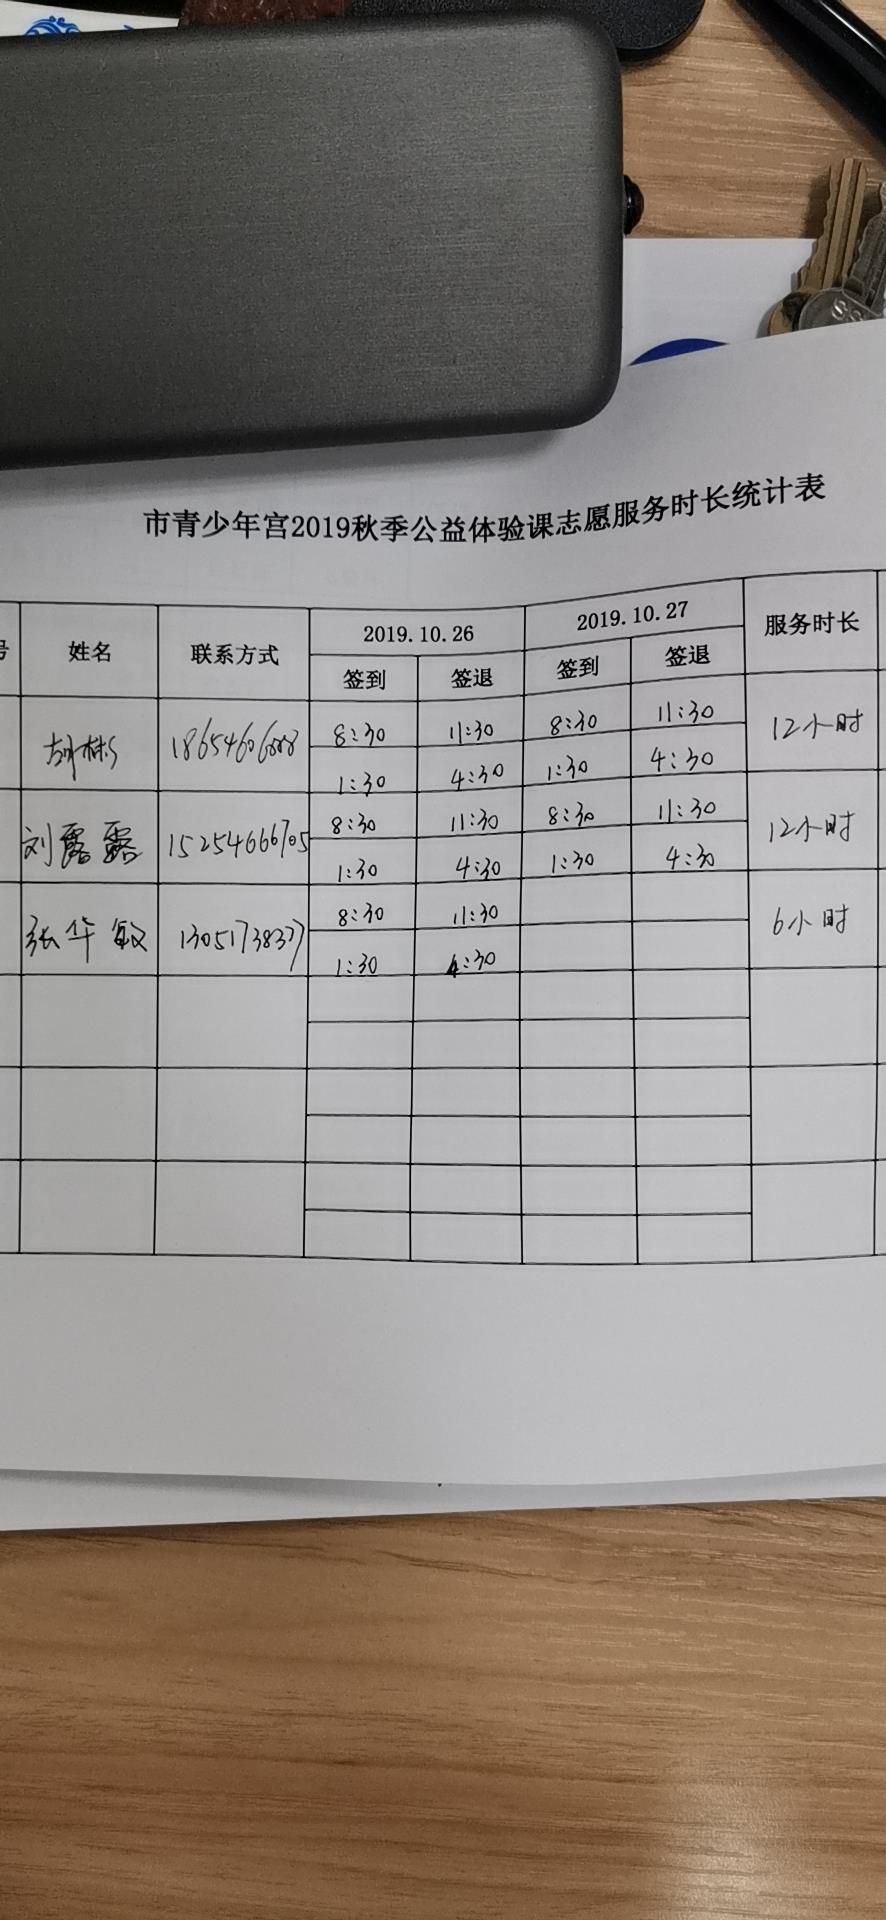 市青少年宫2019秋季公益体验课志愿服务时长统计表
号 姓名 联系方式 2019.10.26 2019.10.27 服务时长
签到 签退 签到 签退
胡彬 8:30 11:30 8:30 11:30 12小时
1:30 4:30 1:30 4:30
刘露露 15254666705 8:30 11:30 8:30 11:30 12小时
1:30 4:30 1:30 4:30
张华敏 8:30 11:30 6小时
1:30 4:30